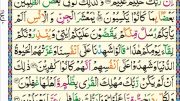 إِنَّ رَبَّكَ حَكِيمٌ عَلِيمٌ وَكَذَٰلِكَ نُوَلِّي بَعْضَ الظَّٰلِمِينَ
بَعْضًۢا بِمَا كَانُوا۟ يَكْسِبُونَ يَٰمَعْشَرَ الْجِنِّ وَالْإِنسِ أَلَمْ
يَأْتِكُمْ رُسُلٌ مِّنكُمْ يَقُصُّونَ عَلَيْكُمْ ءَايَٰتِي وَيُنذِرُونَكُمْ
لِقَآءَ يَوْمِكُمْ هَٰذَا قَالُوا۟ شَهِدْنَا عَلَىٰٓ أَنفُسِنَا وَغَرَّتْهُمُ الْحَيَوٰةُ
الدُّنْيَا وَشَهِدُوا۟ عَلَىٰٓ أَنفُسِهِمْ أَنَّهُمْ كَانُوا۟ كَٰفِرِينَ ذَٰلِكَ
أَن لَّمْ يَكُن رَّبُّكَ مُهْلِكَ الْقُرَىٰ بِظُلْمٍ وَأَهْلُهَا غَٰفِلُونَ